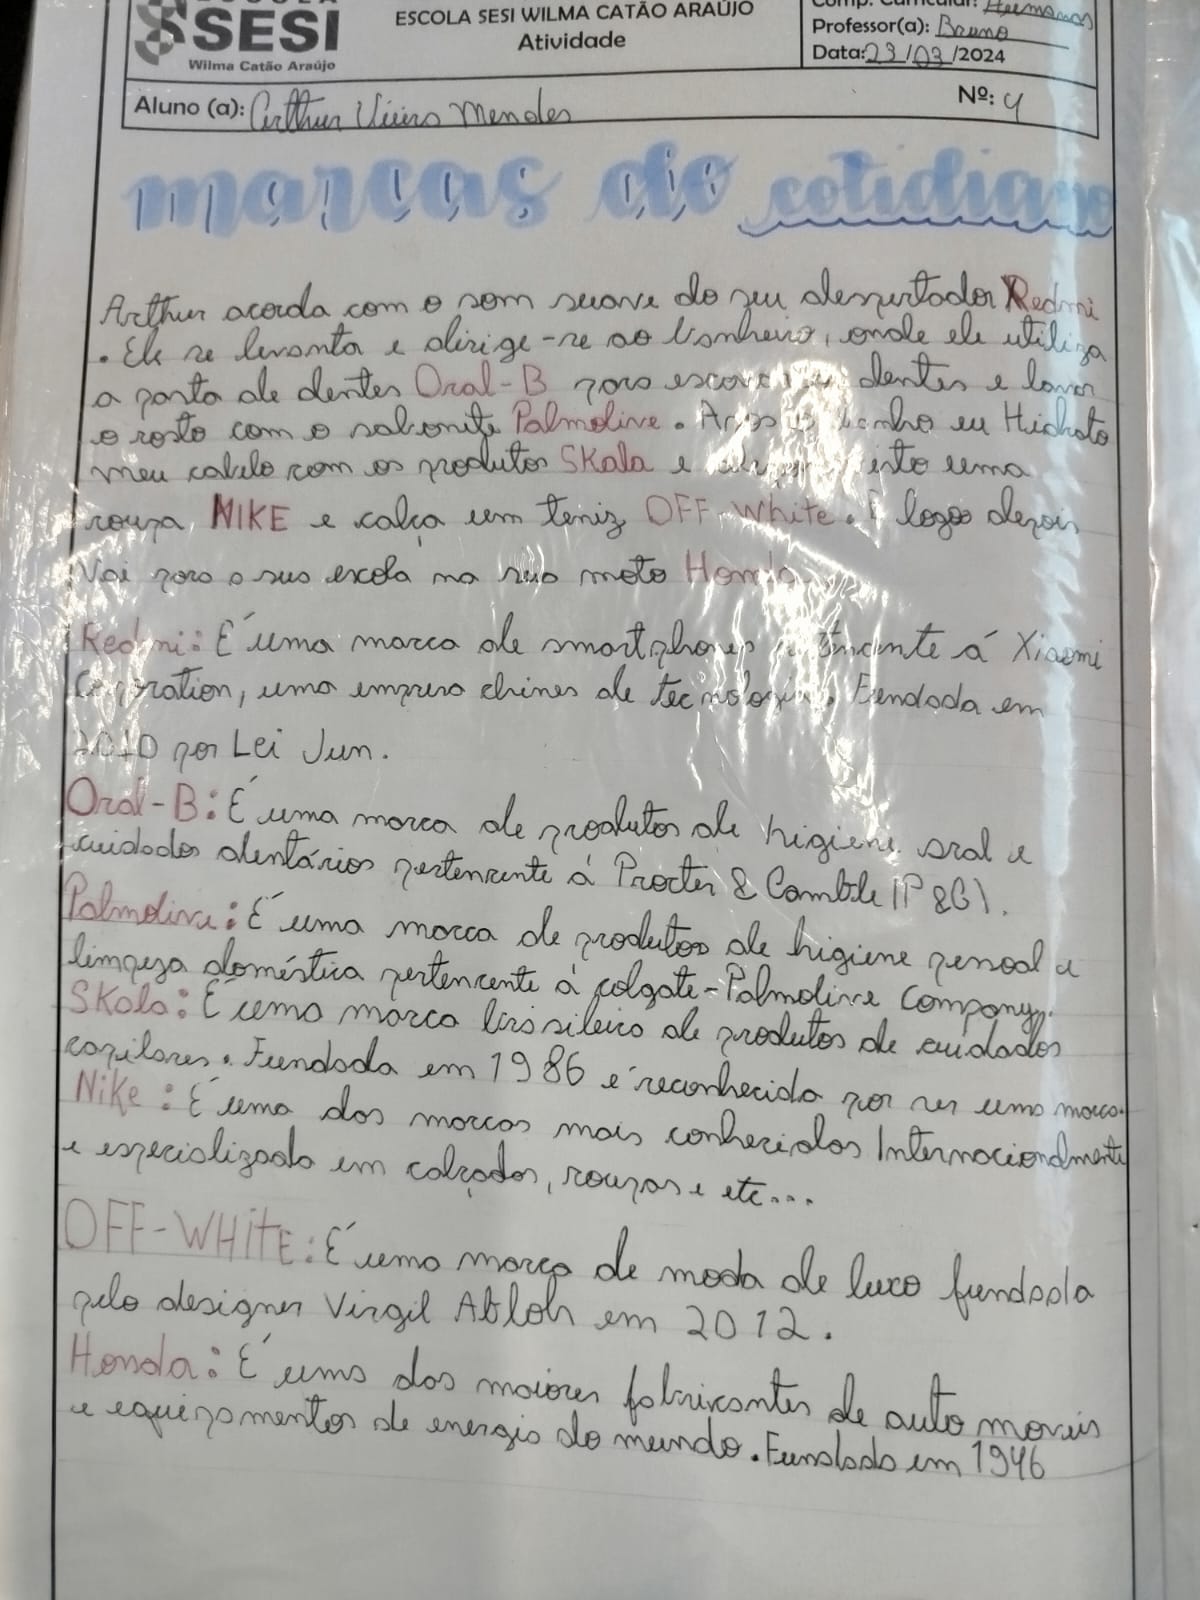 SESI
Wilma Catão Araújo
ESCOLA SESI WILMA CATÃO ARAÚJO
Atividade
Comp. Curricular: Humanas
Professor(a): Bruno
Data: 23/03/2024
Aluno (a): Arthur Vieira Mendes
Nº: 4
marcas do cotidiano
Arthur acorda com o som suave do seu despertador Redmi
. Ele se levanta e dirige-se ao banheiro, onde ele utiliza
a pasta de dentes Oral-B para escovar dentes e lavar
o rosto com o sabonete Palmolive. Após o banho eu Hidrato
meu cabelo com os produtos SKala e visto uma
roupa NIKE e calça um teniz OFF-White. E logo depois
Vai para a sua escola na sua moto Honda
Redmi: É uma marca de smartphones pertencente á Xiaomi
Corporation, uma empresa chines de tecnologia. Fundada em
2010 por Lei Jun.
Oral-B: É uma marca de produtos de higiene oral e
cuidados dentários pertencente á Procter & Gamble (P&G).
Palmolive: É uma marca de produtos de higiene pessoal e
limpeza doméstica pertencente à colgate-Palmolive Company.
SKala: É uma marca brasileira de produtos de cuidados
capilares. Fundada em 1986 e reconhecida por ser uma marca.
Nike: É uma das marcas mais conhecidas Internacionalmente
e especializada em calçados, roupas e etc...
OFF-WHITE: É uma marca de moda de luxo fundada
pelo designer Virgil Abloh em 2012.
Honda: É uma das maiores fabricantes de auto moveis
e equipamentos de energia do mundo. Fundada em 1946